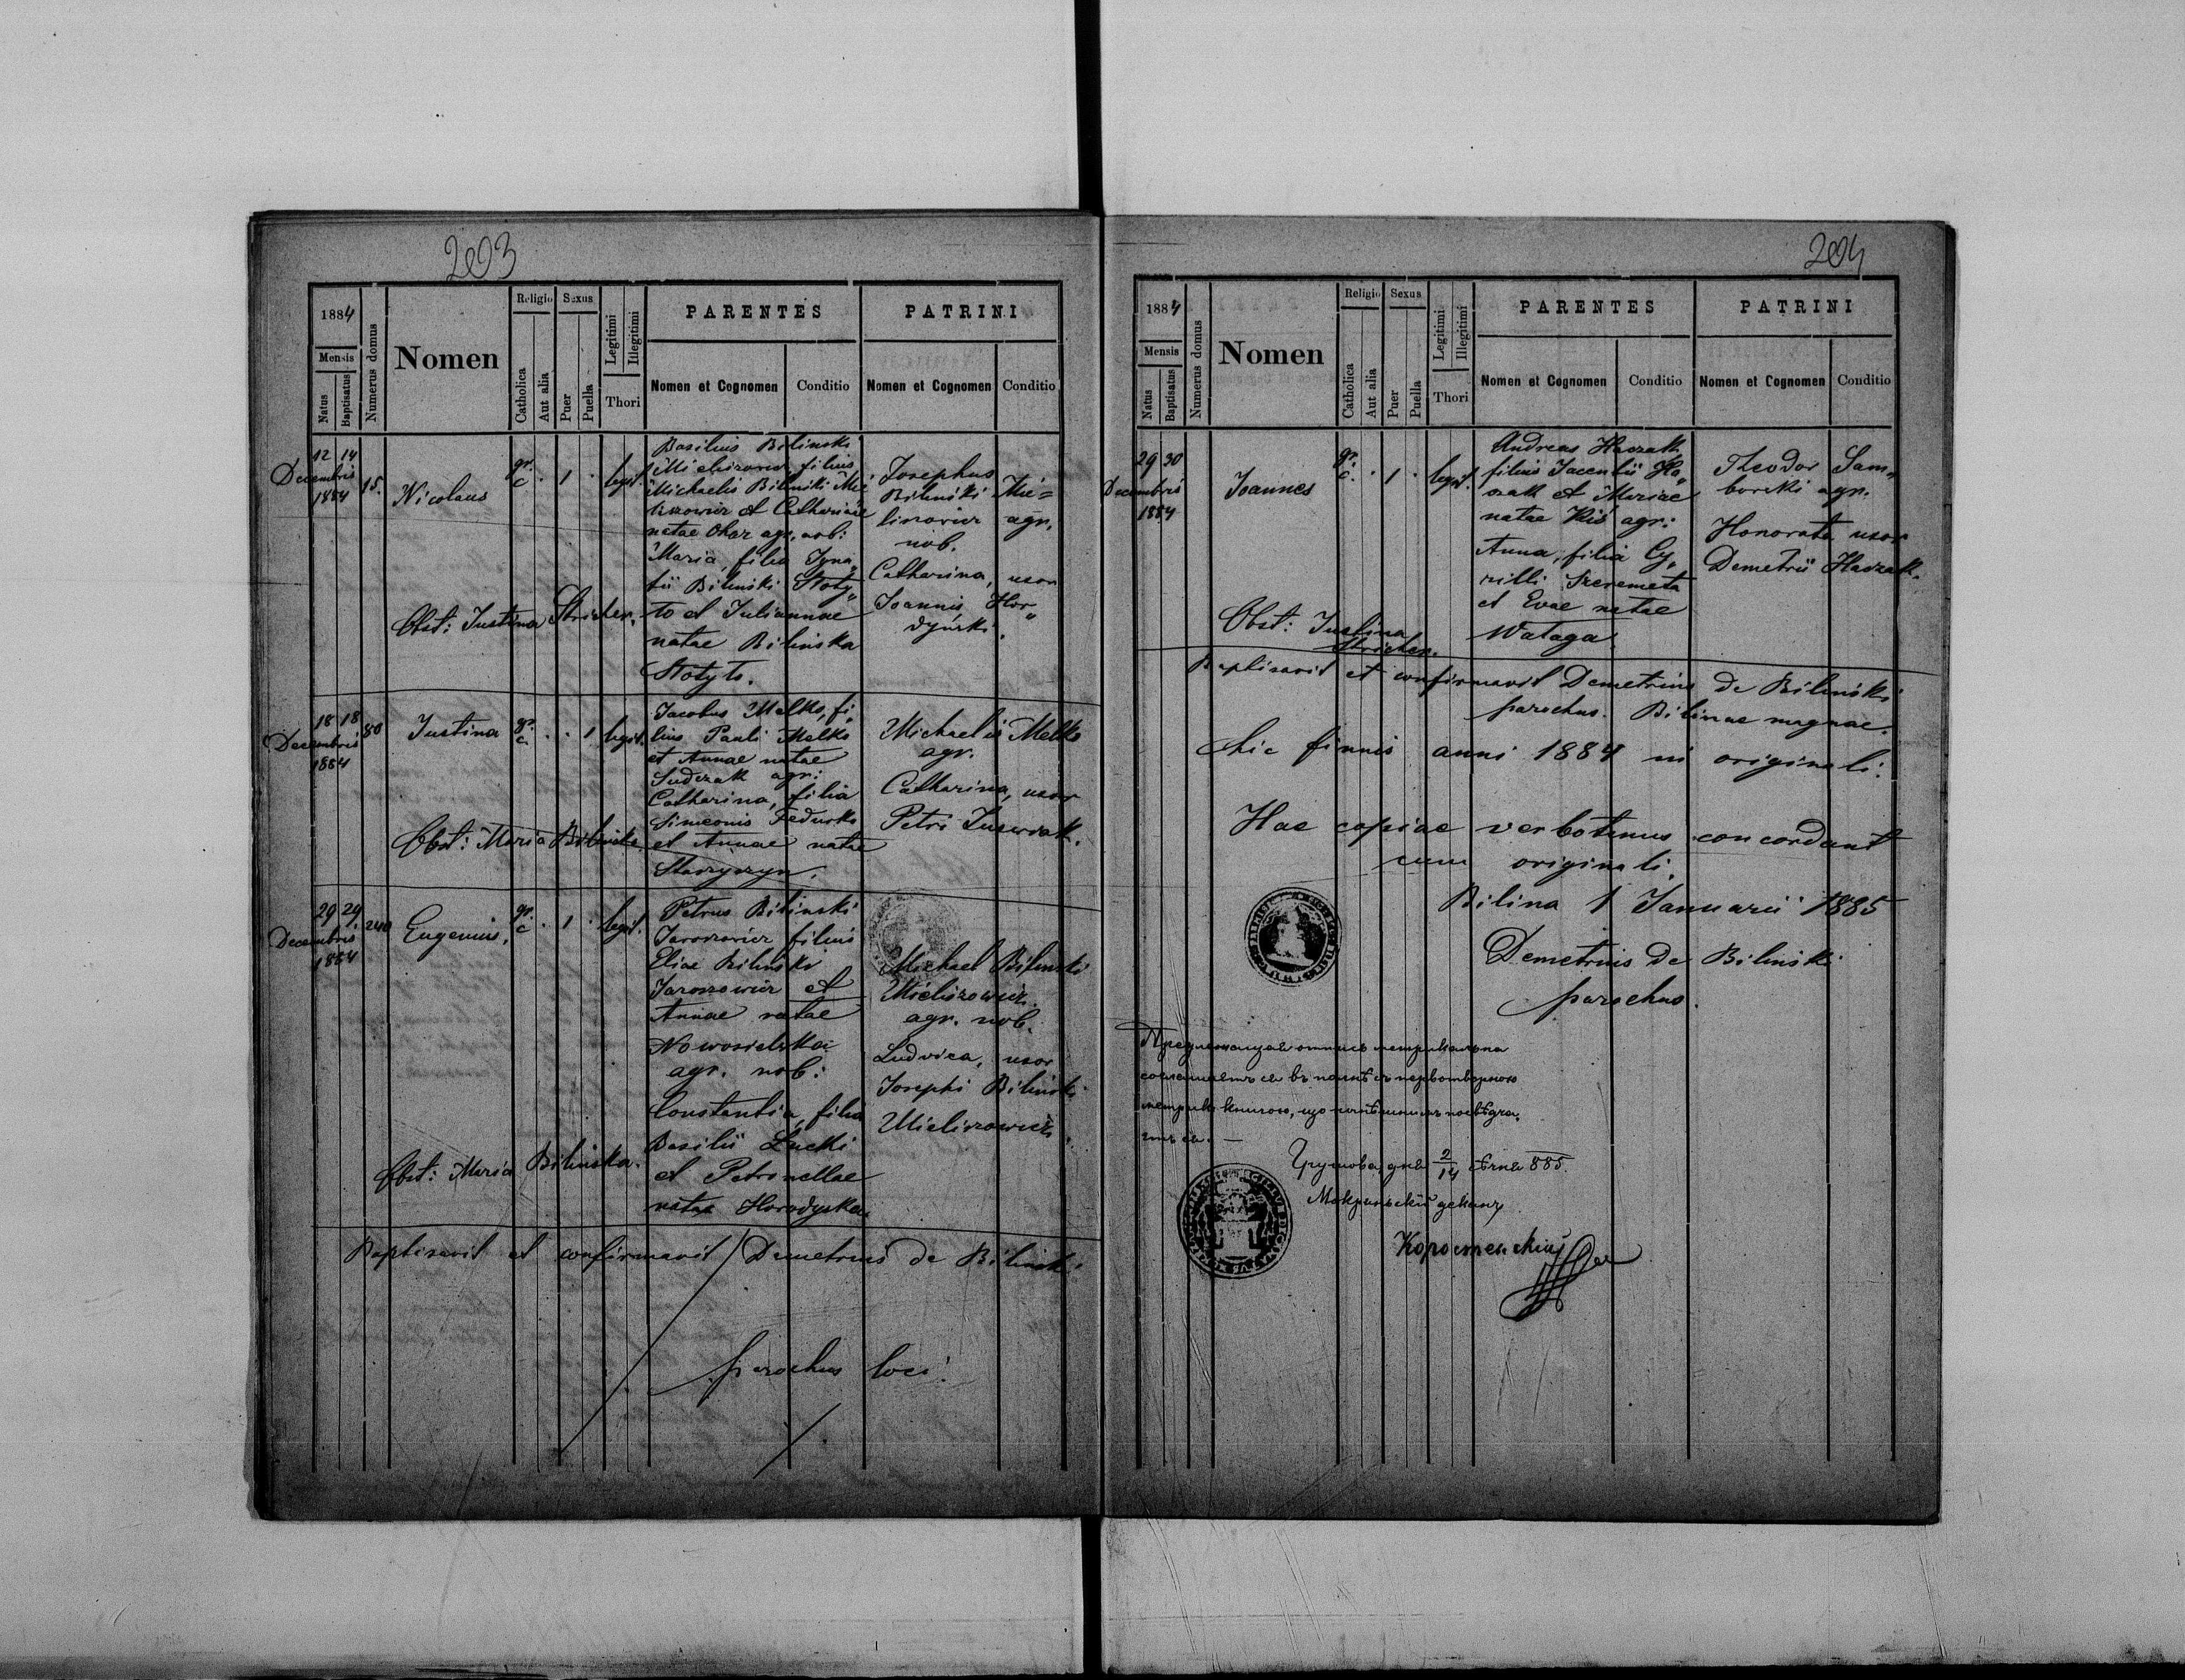 203
1884
Mensis
Natus
Baptisatus
Numerus domus
Nomen
Religio
Catholica
Aut alia
Sexus
Puer
Puella
Legitimi
Illegitimi
Thori
PARENTES
Nomen et Cognomen
Conditio
PATRINI
Nomen et Cognomen
Conditio
12 14
Decembris
1884
15.
Nicolaus
gr.
c.
1
legit.
Basilius Bilinski
filius
Michaelis Bilinski Mie
et Catharinae
natae agr. nob:
Maria, filia Igna„
tii Bilinski Stoty„
to et Juliannae
natae Bilinska
Stotyto.
Josephus
Bilinski Mie=
agr.
nob.
Catharina, uxor
Joannis Hor„
dyński.
Obst: Justina Stricher.
18 18
Decembris
1884
80
Justina
gr.
c.
1
legit.
Jacobus Melko, fi„
lius Pauli Melko
et Annae natae
Sudczak agr:
Catharina, filia
Simeonis Fedurko
et Annae natae
Michaelis Melko
agr.
Catharina, uxor
Petri
Obst: Maria Bilinska.
29 29
Decembris
1884
240
Eugenius.
gr.
c
1
legit.
Petrus Bilinski
Jaroszowicz filius
Eliae Bilinski
Jaroszowicz et
Annae natae
Nowosielska
agr. nob:
Constantia, filia
Basilii Łucki
et Petronellae
natae Horodyska.
Michael Bilinski
agr. nob.
Ludvica, uxor
Josephi Bilinski
Obst: Maria Bilinska.
Baptisavit et confirmavit Demetrius de Bilinski
parochus loci.
204
1884
Mensis
Natus
Baptisatus
Numerus domus
Nomen
Religio
Catholica
Aut alia
Sexus
Puer
Puella
Legitimi
Illegitimi
Thori
PARENTES
Nomen et Cognomen
Conditio
PATRINI
Nomen et Cognomen
Conditio
29 30
Decembris
1884
Joannes
gr.
c.
1
legit.
Andreas
filius Jacentii
et Mariae
natae Kiś agr:
Anna, filia Cy„
rilli Szeremeta
et Evae natae
Wataga.
Theodor Sam„
borski agr.
Honorata uxor
Demetrii
Obst: Justina
Stricher.
Baptisavit et confirmavit Demetrius de Bilinski
parochus. Bilinae magnae.
Hic finnis anni 1884 in originali.
Hae copiae verbotenus concordant
cum originali.
Bilina 1 Januarii 1885
Demetrius de Bilinski
parochus.
отпись метрикальна
въ
книгою, що
дня 2/14 885.